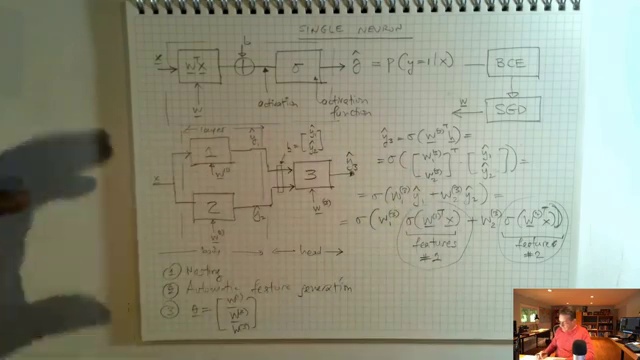 SINGLE NEURON
x → wᵀx → + → σ → ŷ = p(y=1|x) — BCE
b
w
activation
activation function
w
SGD
layer
ŷ₁
1
w⁽¹⁾
h = [ŷ₁ ŷ₂]
x
3
ŷ₃
w⁽³⁾
2
ŷ₂
w⁽²⁾
head
ŷ₃ = σ(w⁽³⁾ᵀh) =
= σ([w₁⁽³⁾ w₂⁽³⁾]ᵀ [ŷ₁ ŷ₂]) =
= σ(w₁⁽³⁾ŷ₁ + w₂⁽³⁾ŷ₂) =
= σ(w₁⁽³⁾ σ(w⁽¹⁾ᵀx) + w₂⁽³⁾ σ(w⁽²⁾ᵀx))
features #2
features #2
① Nesting
② Automatic feature generation
③ = [w⁽¹⁾ w⁽²⁾ w⁽³⁾]